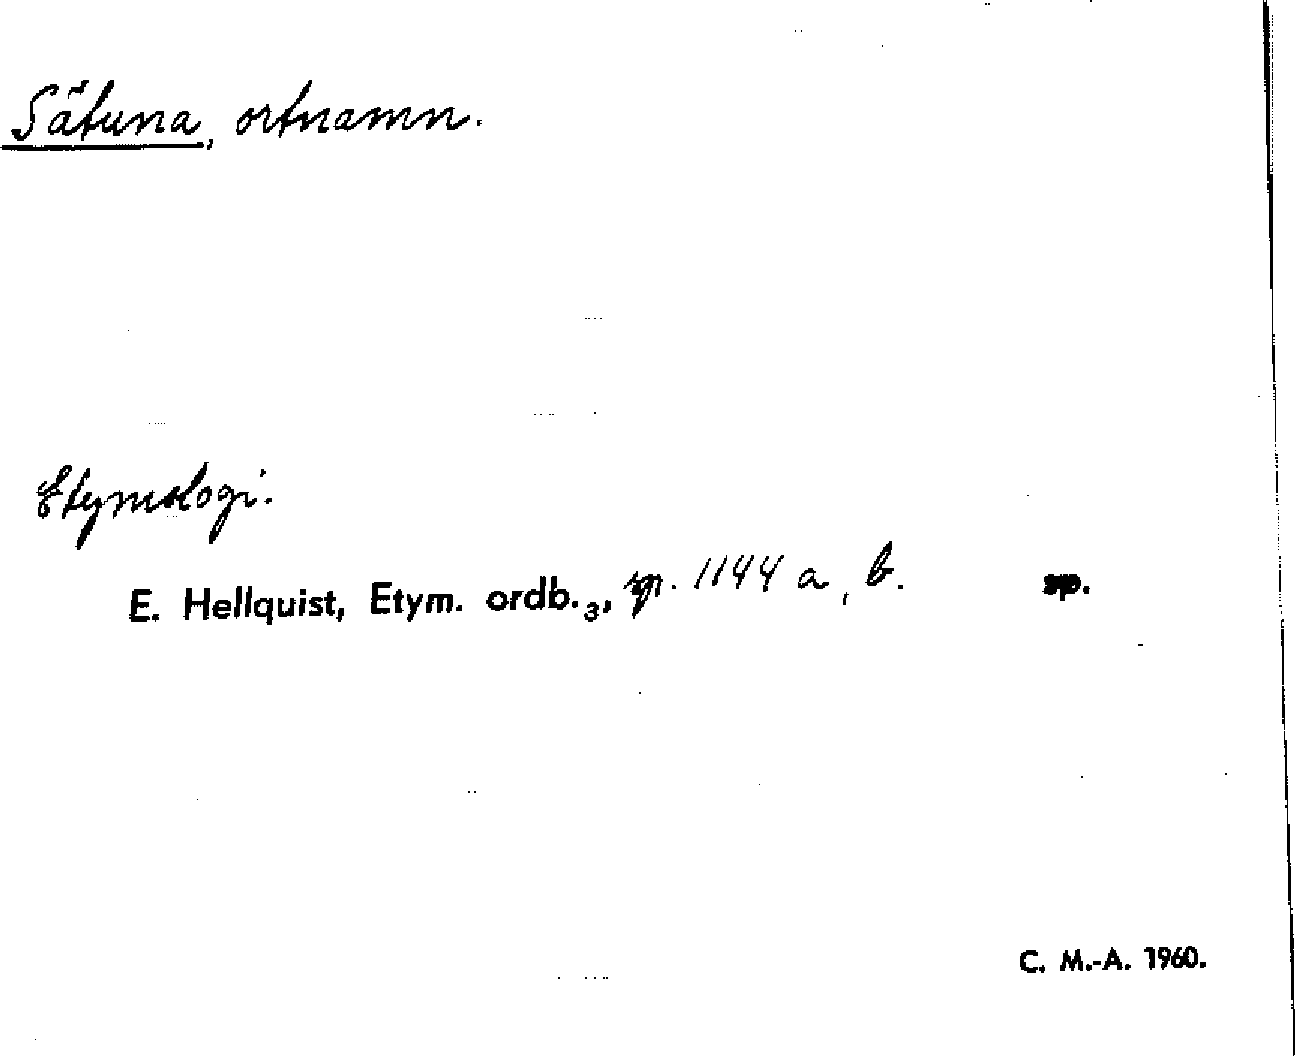 Sätuna, ortnamn.
Etymologi.
E. Hellquist, Etym. ordb.₃, sp. 1144 a, b. sp.
C. M.-A. 1960.